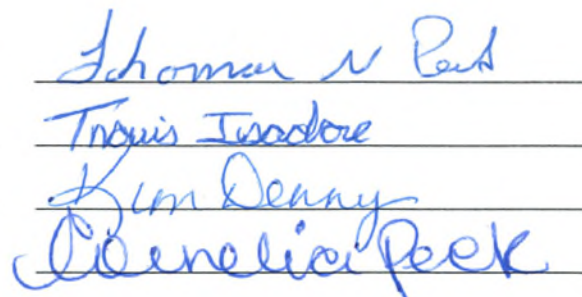 Thomas N
Travis Isadore
Kim Denny
Cornelia Peek